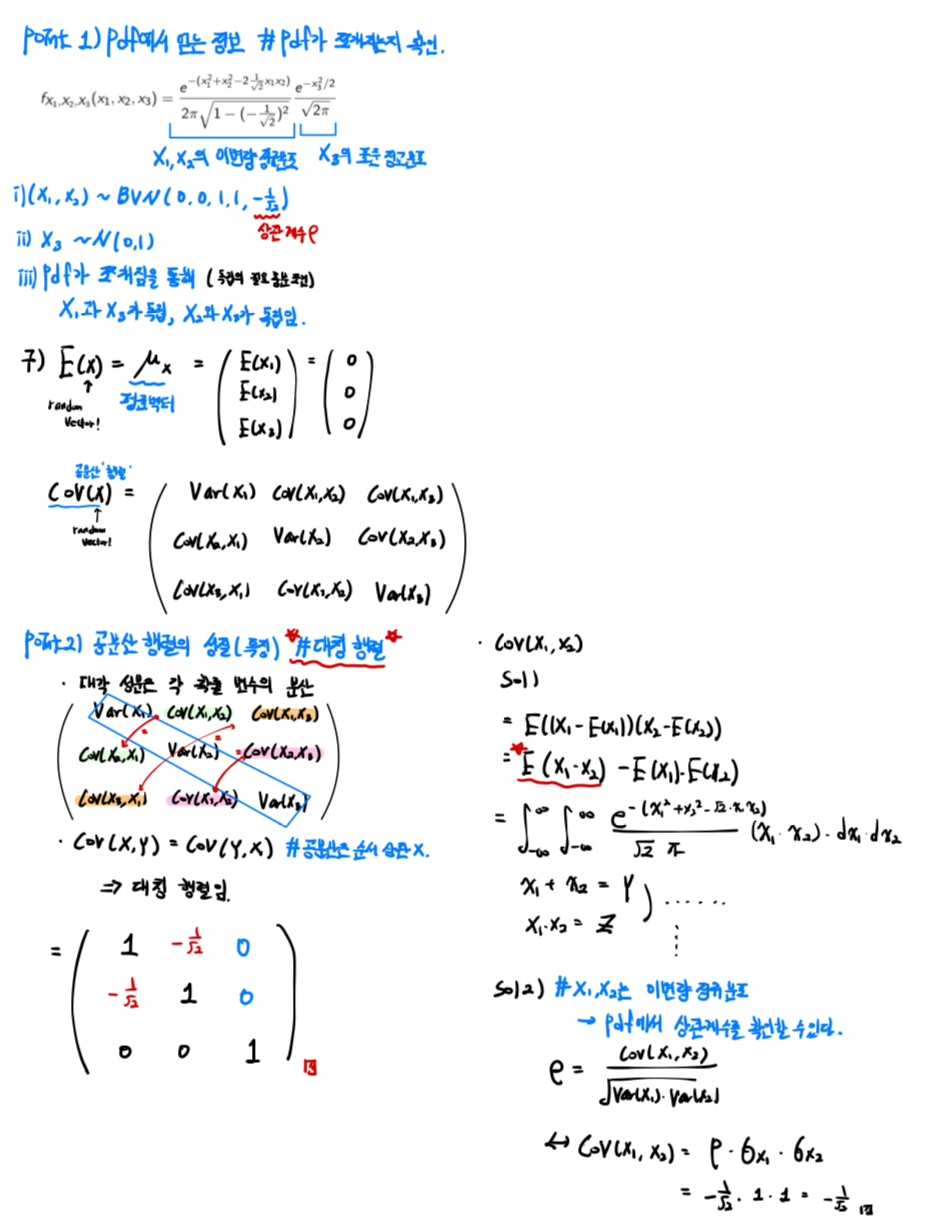 point 1) Pdf에서 얻는 정보 #Pdf가 쪼개지는지 확인.
f_{X_1,X_2,X_3}(x1, x2, x3) = \frac{e^{-(x_1^2+x_2^2-2\frac{1}{\sqrt{2}}x_1x_2)}}{2\pi\sqrt{1-(-\frac{1}{\sqrt{2}})^2}} \frac{e^{-x_3^2/2}}{\sqrt{2\pi}}
X₁, X₂의 이변량 정규분포 X₃의 표준 정규분포
i) (X₁, X₂) ~ BVN(0, 0, 1, 1, -1/√2)
상관계수 ρ
ii) X₃ ~ N(0,1)
iii) Pdf가 쪼개짐을 통해 (독립의 필요충분조건)
X₁과 X₃가 독립, X₂와 X₃가 독립임.
구) E(X) = μ_X = (E(X₁) E(X₂) E(X₃)) = (0 0 0)
random vector! 평균벡터
공분산 '행렬'
Cov(X) =
random vector!
Var(X₁) Cov(X₁,X₂) Cov(X₁,X₃)
Cov(X₂,X₁) Var(X₂) Cov(X₂,X₃)
Cov(X₃,X₁) Cov(X₃,X₂) Var(X₃)
point2) 공분산 행렬의 성질(특징) #대칭 행렬
· 대각 성분은 각 확률 변수의 분산
Var(X₁) Cov(X₁,X₂) Cov(X₁,X₃)
Cov(X₂,X₁) Var(X₂) = Cov(X₂,X₃)
Cov(X₃,X₁) Cov(X₃,X₂) Var(X₃)
· Cov(X,Y) = Cov(Y,X) #공분산은 순서 상관 X.
⇒ 대칭 행렬임.
=
1 -1/√2 0
-1/√2 1 0
0 0 1
· Cov(X₁, X₂)
Sol1)
= E((X₁ - E(X₁))(X₂ - E(X₂))
= E(X₁·X₂) - E(X₁)·E(X₂)
= ∫_{-∞}^{∞} ∫_{-∞}^{∞} \frac{e^{-(x_1^2+x_2^2-\sqrt{2}·x_1x_2)}}{\sqrt{2} π} (X₁·X₂)·dx₁·dx₂
x₁ + x₂ = Y
x₁·x₂ = Z ) ......
Sol2) #X₁,X₂는 이변량 정규분포
→ pdf에서 상관계수를 확인할 수 있다.
ρ = \frac{Cov(X₁,X₂)}{\sqrt{Var(X₁)·Var(X₂)}}
↔ Cov(X₁, X₂) = ρ · σx₁ · σx₂
= -1/√2 · 1 · 1 = -1/√2